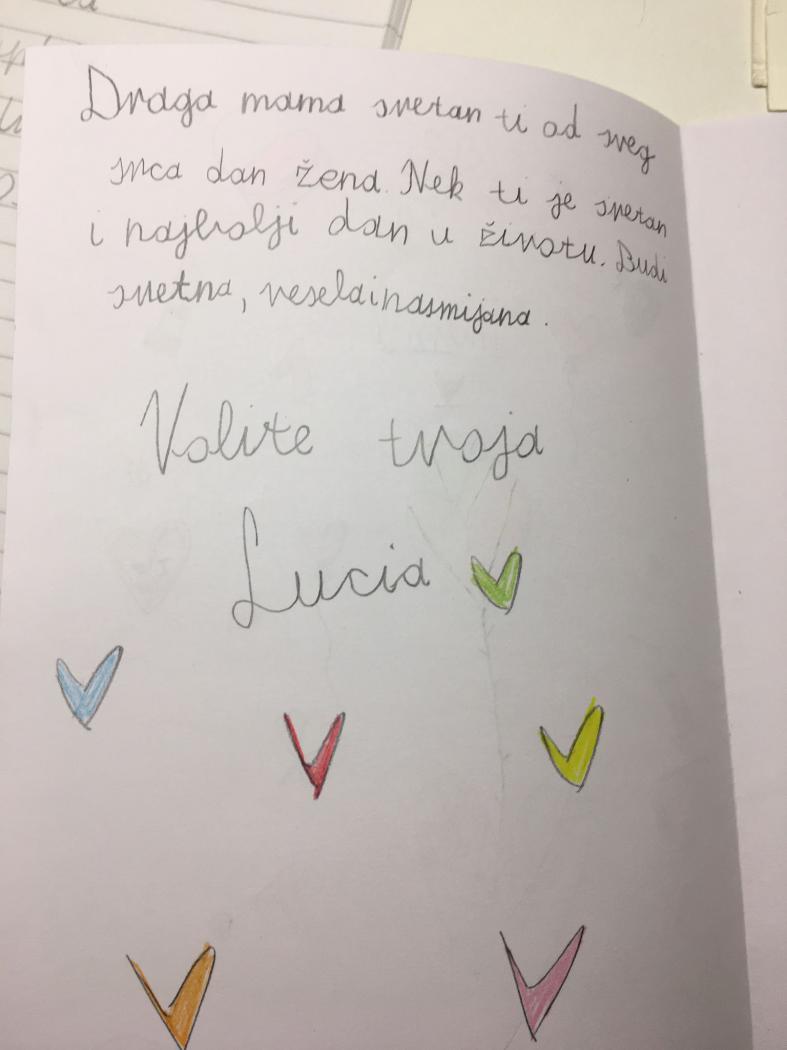 Draga mama sretan ti od sveg
srca dan žena. Nek ti je sretan
i najbolji dan u životu. Budi
sretna, veselainasmijana.
Volite tvoja
Lucia